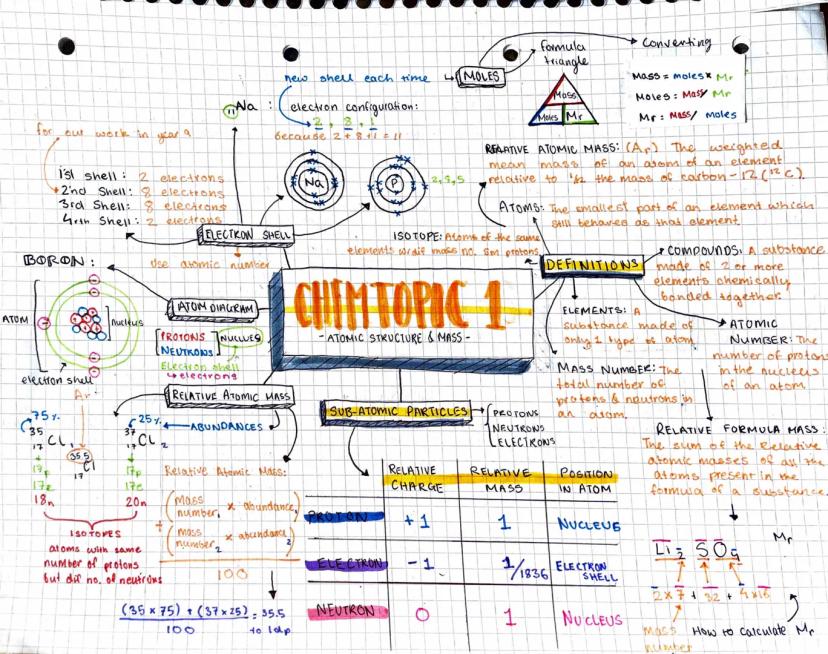 new shell each time
MOLES
formula
triangle
converting
Mass
Moles
Mr
Mass = moles x Mr
Moles = Mass/ Mr
Mr = Mass/ moles
11Na :
electron configuration:
2, 8, 1
because 2 + 8 + 1 = 11
for our work in year 9
1st shell: 2 electrons
2nd Shell: 8 electrons
3rd Shell: 8 electrons
4rth Shell: 2 electrons
Na
P
2,8,5
ELECTRON SHELL
use atomic number
RELATIVE ATOMIC MASS: (Ar) The weighted
mean mass of an atom of an element
relative to 1/12 the mass of carbon-12 (12C).
ATOMS: The smallest part of an element which
still behaves as that element.
ISOTOPE: Atoms of the same
elements w/dif mass no. sm protons
DEFINITIONS
COMPOUNDS: A substance
made of 2 or more
elements chemically
bonded together.
ELEMENTS: A
substance made of
only 1 type of atom.
ATOMIC
NUMBER: The
number of protons
in the nucleus
of an atom.
MASS NUMBER: The
total number of
protons & neutrons in
an atom.
RELATIVE FORMULA MASS:
The sum of the Relative
atomic masses of all the
atoms present in the
formula of a substance.
Mr
Li2 SO4
2 x 7 + 32 + 4 x 16
mass
number
How to calculate Mr
CHEM TOPIC 1
- ATOMIC STRUCTURE & MASS -
BORON:
ATOM
nucleus
electron shell
ATOM DIAGRAM
PROTONS
NEUTRONS
NUCLUES
Electron shell
electrons
RELATIVE ATOMIC MASS
75%
35
17 Cl 1
Ar
35.5
17 Cl
25%
37
17 Cl 2
ABUNDANCES
17p
17e
18n
17p
17e
20n
ISOTOPES
atoms with same
number of protons
but dif no. of neutrons
Relative Atomic Mass:
(mass number1 x abundance1)
+
(mass number2 x abundance2)
100
(35 x 75) + (37 x 25) = 35.5
100
to 1dp
SUB-ATOMIC PARTICLES
PROTONS
NEUTRONS
ELECTRONS
RELATIVE CHARGE
RELATIVE MASS
POSITION IN ATOM
PROTON +1 1 NUCLEUS
ELECTRON -1 1/1836 ELECTRON SHELL
NEUTRON 0 1 NUCLEUS